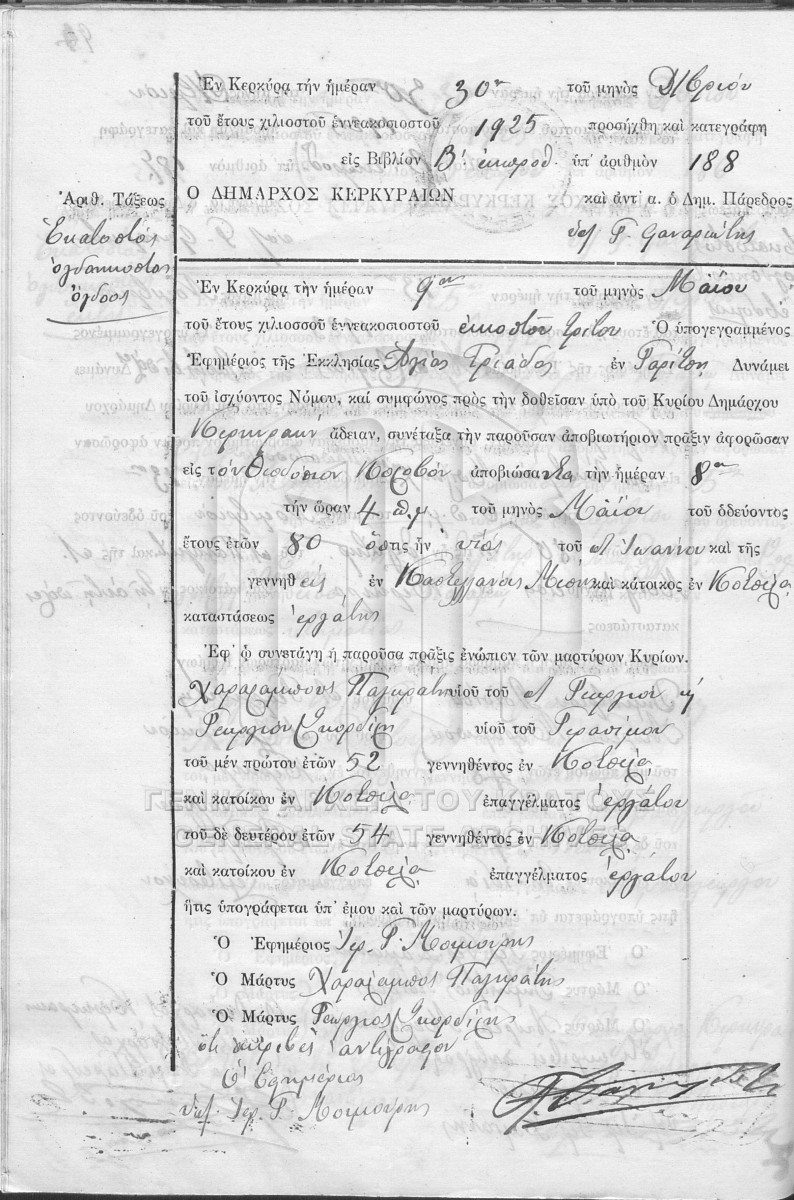 Ἐν Κερκύρᾳ τὴν ἡμέραν 30ην τοῦ μηνὸς Δ/βρίου
τοῦ ἔτους χιλιοστοῦ ἐννεακοσιοστοῦ 1925 προσήχθη καὶ κατεγράφη
εἰς Βιβλίον Β′. ἐκπροθ. ὑπ' ἀριθμὸν 188
Ἀριθ. Τάξεως
Ο ΔΗΜΑΡΧΟΣ ΚΕΡΚΥΡΑΙΩΝ καὶ ἀντ' α. ὁ Δημ. Πάρεδρος
Ἑκατοστὸς
ὀγδοηκοστὸς
ὄγδοος
Ἐν Κερκύρᾳ τὴν ἡμέραν 9ην τοῦ μηνὸς Μαΐου
τοῦ ἔτους χιλιοσσοῦ ἐννεακοσιοστοῦ εἰκοστοῦ τρίτου Ὁ ὑπογεγραμμένος
Ἐφημέριος τῆς Ἐκκλησίας Ἁγίας Τριάδος ἐν Γαρίτσῃ Δυνάμει
τοῦ ἰσχύοντος Νόμου, καί συμφώνος πρὸς τὴν δοθεῖσαν ὑπὸ τοῦ Κυρίου Δημάρχου
Κερκυραίων ἄδειαν, συνέταξα τὴν παροῦσαν ἀποβιωτήριον πρᾶξιν ἀφορῶσαν
εἰς τὸν Θεοδόσιον ἀποβιώσαντα τὴν ἡμέραν 8ην
τὴν ὥραν 4 π.μ τοῦ μηνὸς Μαΐου τοῦ ὁδεύοντος
ἔτους ἐτῶν 80 ὅστις ἦν υἱὸς τοῦ Ἰωάννου καὶ τῆς
γεννηθεὶς ἐν Καστελλάνοις Μέσης καὶ κάτοικος ἐν Κοτσέλα
καταστάσεως ἐργάτης
Ἐφ' ᾧ συνετάγη ἡ παροῦσα πρᾶξις ἐνώπιον τῶν μαρτύρων Κυρίων.
Χαραλάμπους Παγκράτη υἱοῦ τοῦ Γεωργίου ἢ
Γεωργίου Σκορδίλη υἱοῦ τοῦ Γερασίμου
τοῦ μέν πρώτου ἐτῶν 52 γεννηθέντος ἐν Κοτσέλα
καὶ κατοίκου ἐν Κοτσέλα ἐπαγγέλματος ἐργάτου
τοῦ δὲ δευτέρου ἐτῶν 54 γεννηθέντος ἐν Κοτσέλα
καὶ κατοίκου ἐν Κοτσέλα ἐπαγγέλματος ἐργάτου
ἥτις ὑπογράφεται ὑπ' ἐμου καὶ τῶν μαρτύρων.
Ὁ Ἐφημέριος Ἱερ. Γ.
Ὁ Μάρτυς Χαράλαμπος Παγκράτης
Ὁ Μάρτυς Γεώργιος Σκορδίλης
ὅτι ἀκριβὲς ἀντίγραφον
Ὁ Ἐφημέριος
ὑπ. Ἱερ. Γ.
ΓΕΝΙΚΑ ΑΡΧΕΙΑ ΤΟΥ ΚΡΑΤΟΥΣ
GENERAL STATE ARCHIVES